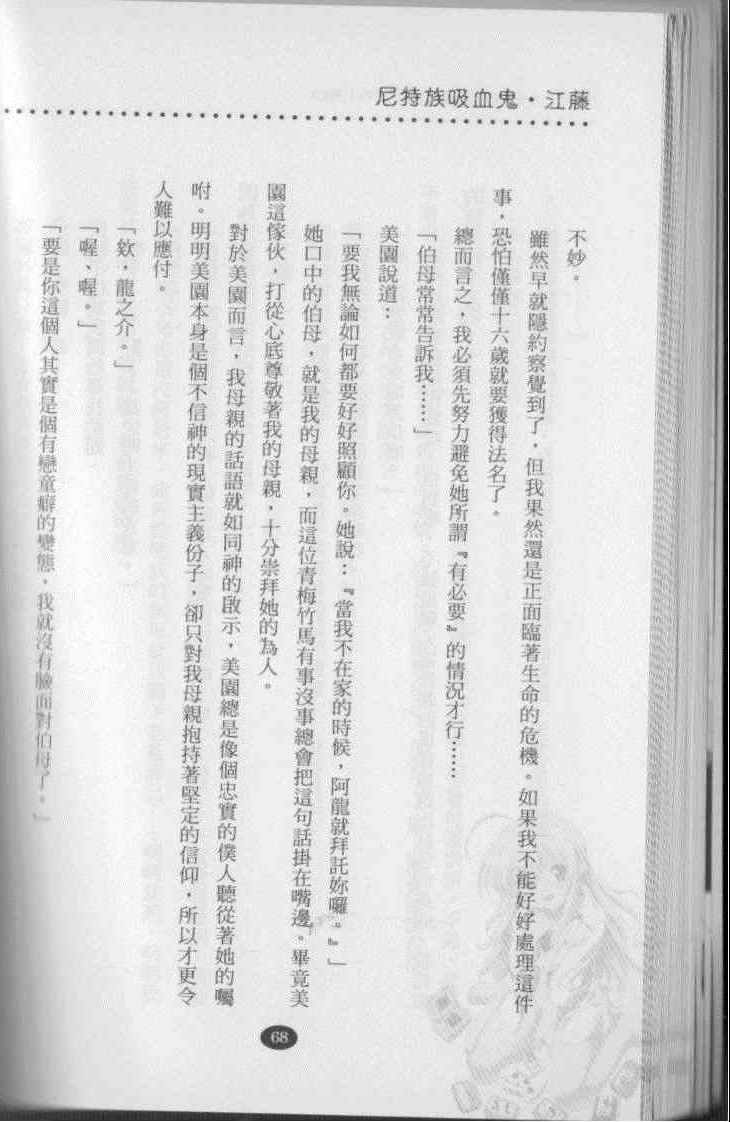 尼特族吸血鬼・江藤
不妙。
雖然早就隱約察覺到了，但我果然還是正面臨著生命的危機。如果我不能好好處理這件
事，恐怕僅僅十六歲就要獲得法名了。
總而言之，我必須先努力避免她所謂『有必要』的情況才行……
「伯母常常告訴我……」
美園說道：
「要我無論如何都要好好照顧你。她說：『當我不在家的時候，阿龍就拜託妳囉。』」
她口中的伯母，就是我的母親，而這位青梅竹馬有事沒事總會把這句話掛在嘴邊。畢竟美
園這傢伙，打從心底尊敬著我的母親，十分崇拜她的為人。
對於美園而言，我母親的話語就如同神的啟示，美園總是像個忠實的僕人聽從著她的囑
咐。明明美園本身是個不信神的現實主義份子，卻只對我母親抱持著堅定的信仰，所以才更令
人難以應付。
「欸，龍之介。」
「喔、喔。」
「要是你這個人其實是個有戀童癖的變態，我就沒有臉面對伯母了。」
68